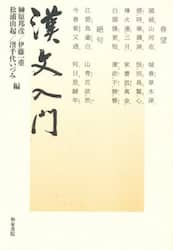 春望
國破山河在 城春草木深
感時花濺涙 恨別鳥驚心
烽火連三月 家書抵萬金
白頭掻更短 渾欲不勝簪
絶句
江碧鳥逾白 山青花欲然
今春看又過 何日是歸年
榊原邦彦/伊藤一重
松浦由起/濱千代いづみ 編
漢文入門
和泉書院